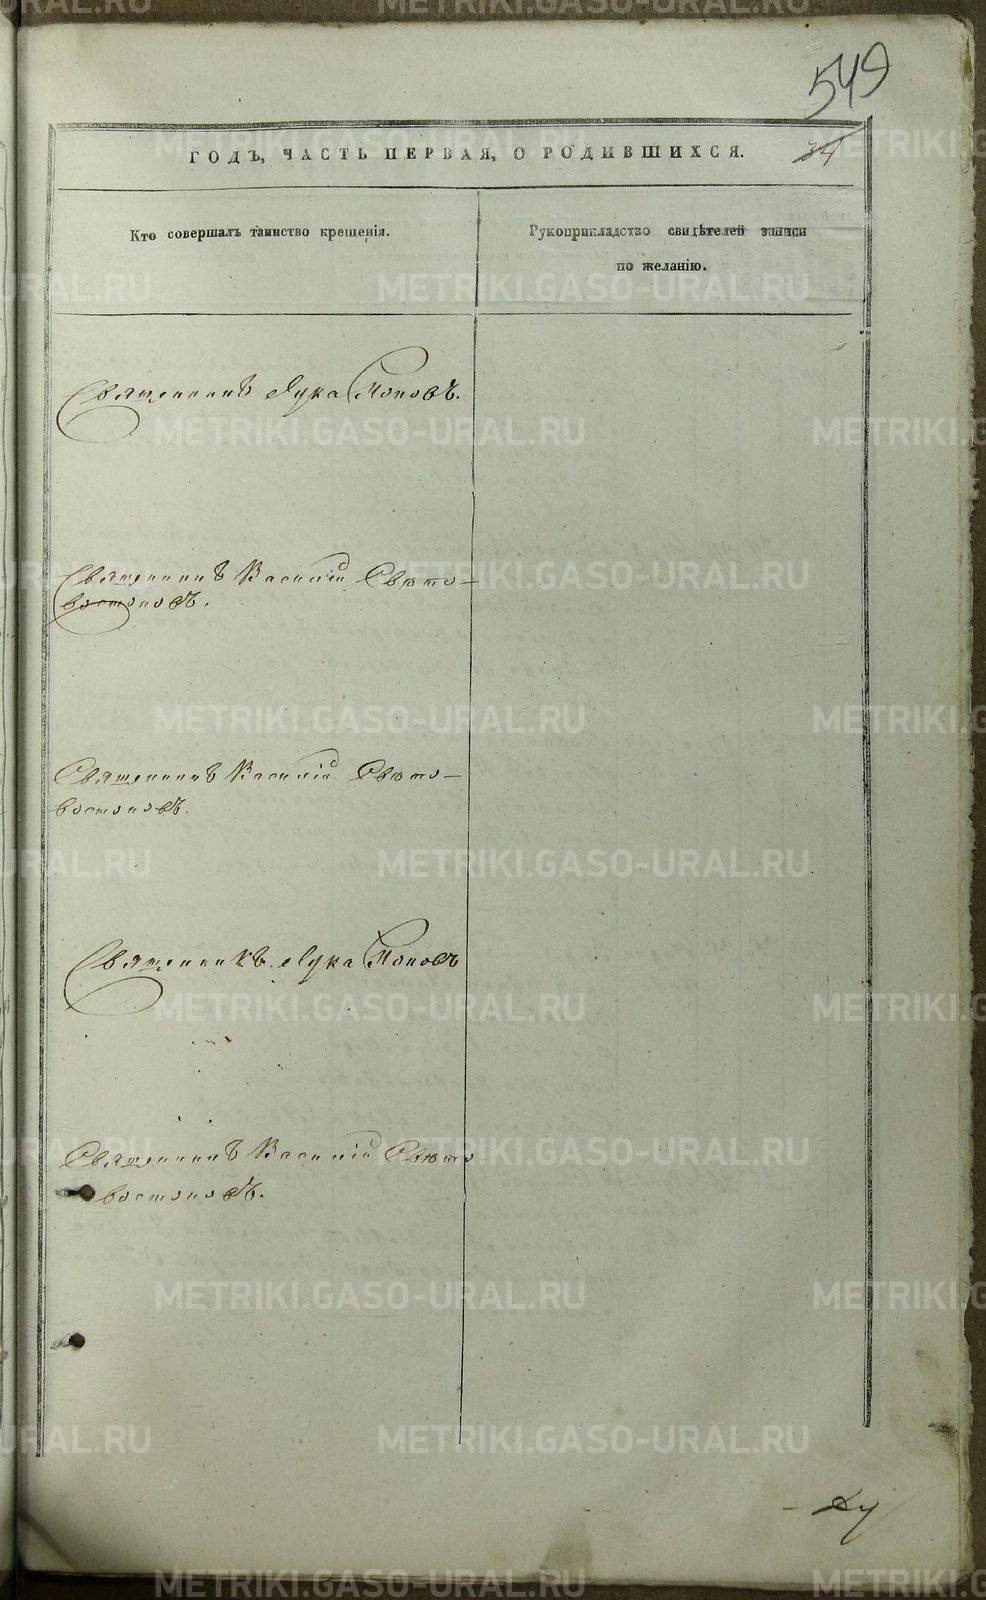 549
34
ГОДЪ, ЧАСТЬ ПЕРВАЯ, О РОДИВШИХСЯ.
Кто совершалъ таинство крещенія.
Рукоприкладство свидѣтелей записи
по желанію.
Священникъ Лука Поповъ.
Священникъ Василій Свѣто-
востоковъ.
Священникъ Василій Свѣто-
востоковъ.
Священникъ Лука Поповъ
Священникъ Василій Свѣто
востоковъ.
METRIKI.GASO-URAL.RU